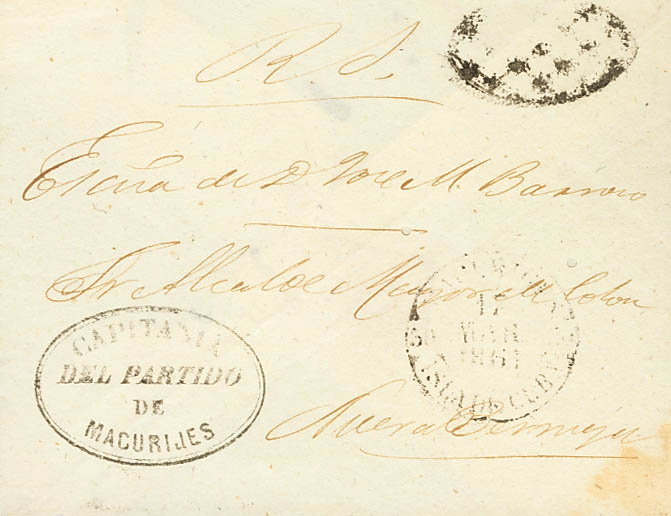 R S.
Escña de D. José M. Barroso
Sr Alcalde Mayor de Colon
Nueva Bermeja
CAPITANIA
DEL PARTIDO
DE
MACURIJES
17
MAR.
1861
ISLA DE CUBA